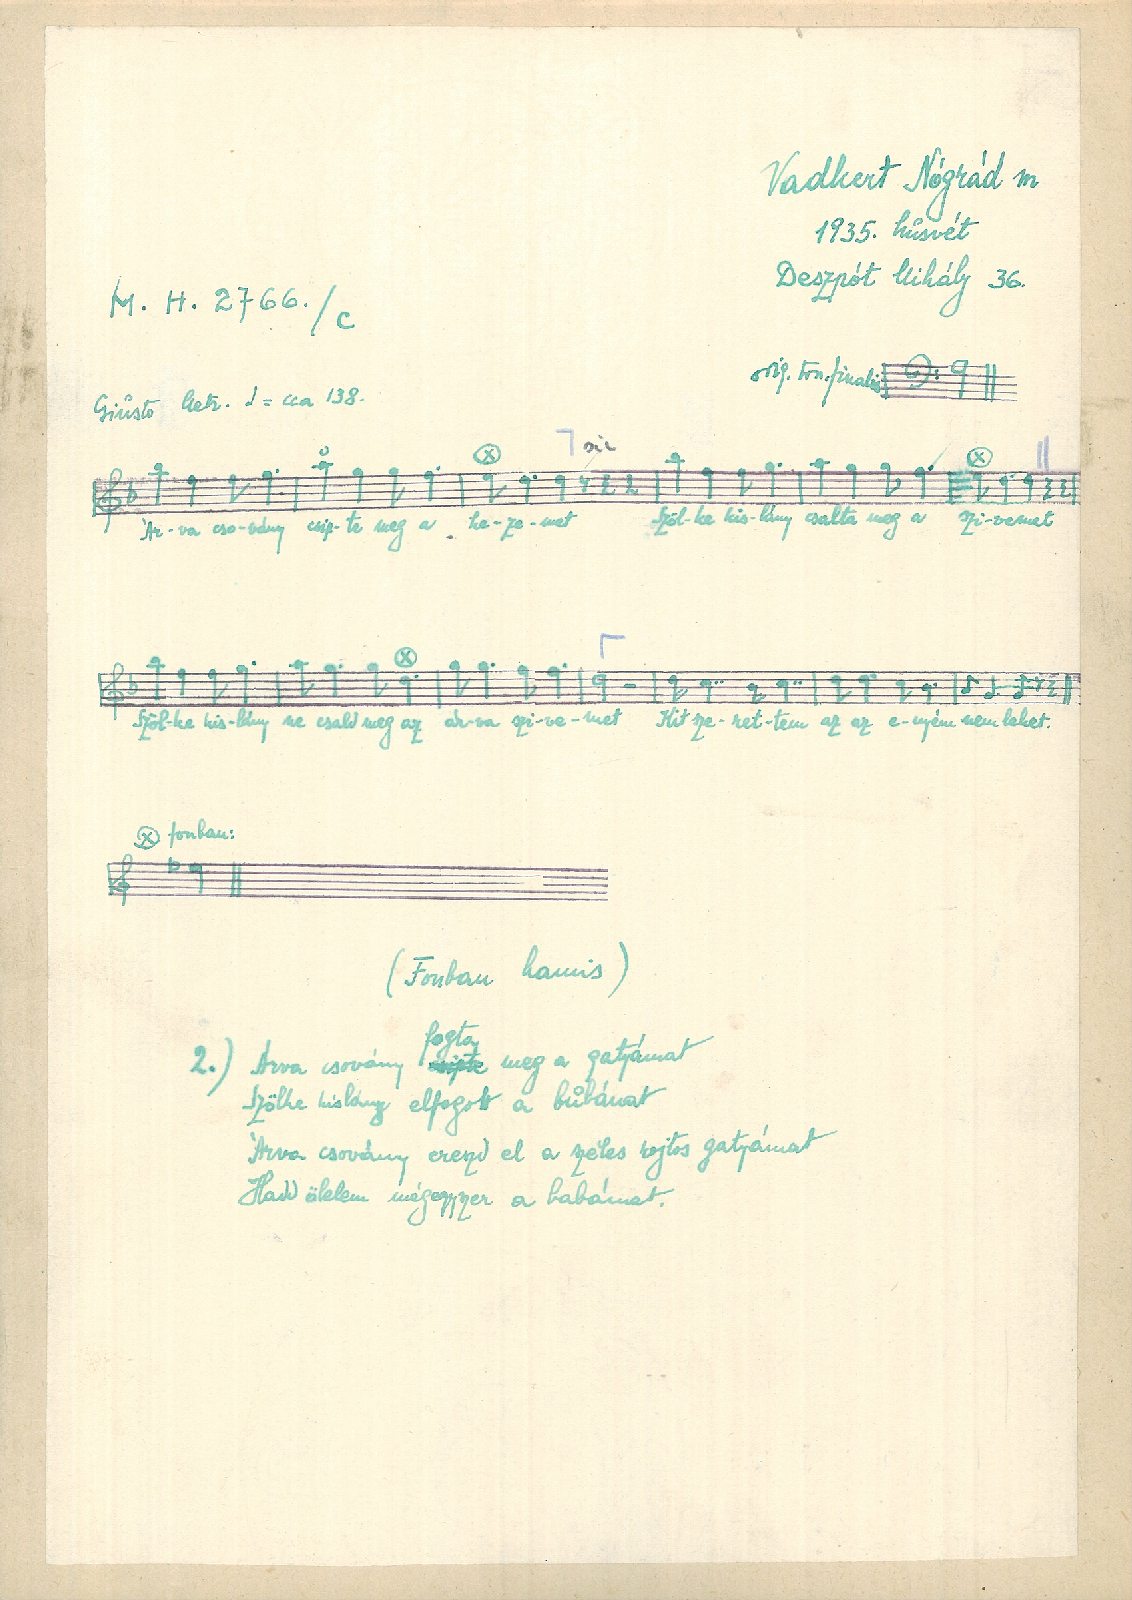 Vadkert Nógrád m
1935. húsvét
Deszpót Mihály 36.
M. H. 2766./c
orig. ton. finalis
Giusto ♩ = cca 138.
sic
Ár-va cso-vány csip-te meg a ke-ze-met Szöl-ke kis-lány csalta meg a szi-vemet
Szöl-ke kis-lány ne csald meg az ár-va szi-ve-met Kit sze-ret-tem az az e-nyém nem lehet.
ⓧ fonban:
(Fonban hamis)
fogta
2.) Árva csovány csipte meg a gatyámat
Szölke kislány elfogott a búbánat
Árva csovány ereszd el a széles rojtos gatyámat
Hadd ölelem mégegyszer a babámat.